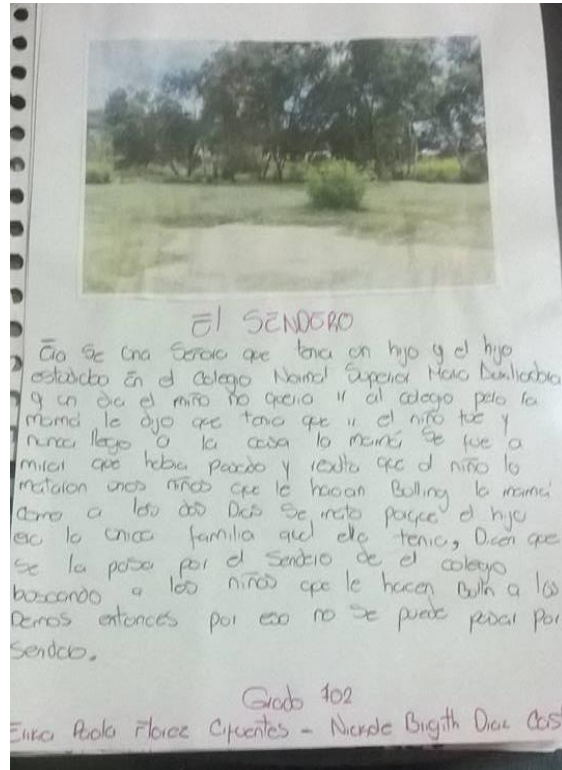 El SENDERO
Era se una Señora que tenia un hijo y el hijo
estudiaba En el Colegio Normal Superior Maria Auxiliadora
y un dia el niño no queria ir al colegio pero la
mamá le dijo que tenia que ir el niño fue y
nunca llego a la casa la mamá se fue a
mirar que habia pasado y resulta que al niño lo
mataron unos niños que le hacian Bulling la mamá
como a los dos Dias se mato porque el hijo
era la unica familia que ella tenia, Dicen que
se la pasa por el Sendero de el colegio
buscando a los niños que le hacen Bulin a los
Demas entonces por eso no se puede pasar por
Sendero.
Grado 702
Erika Paola Florez Cifuentes - Nickole Brigith Diaz